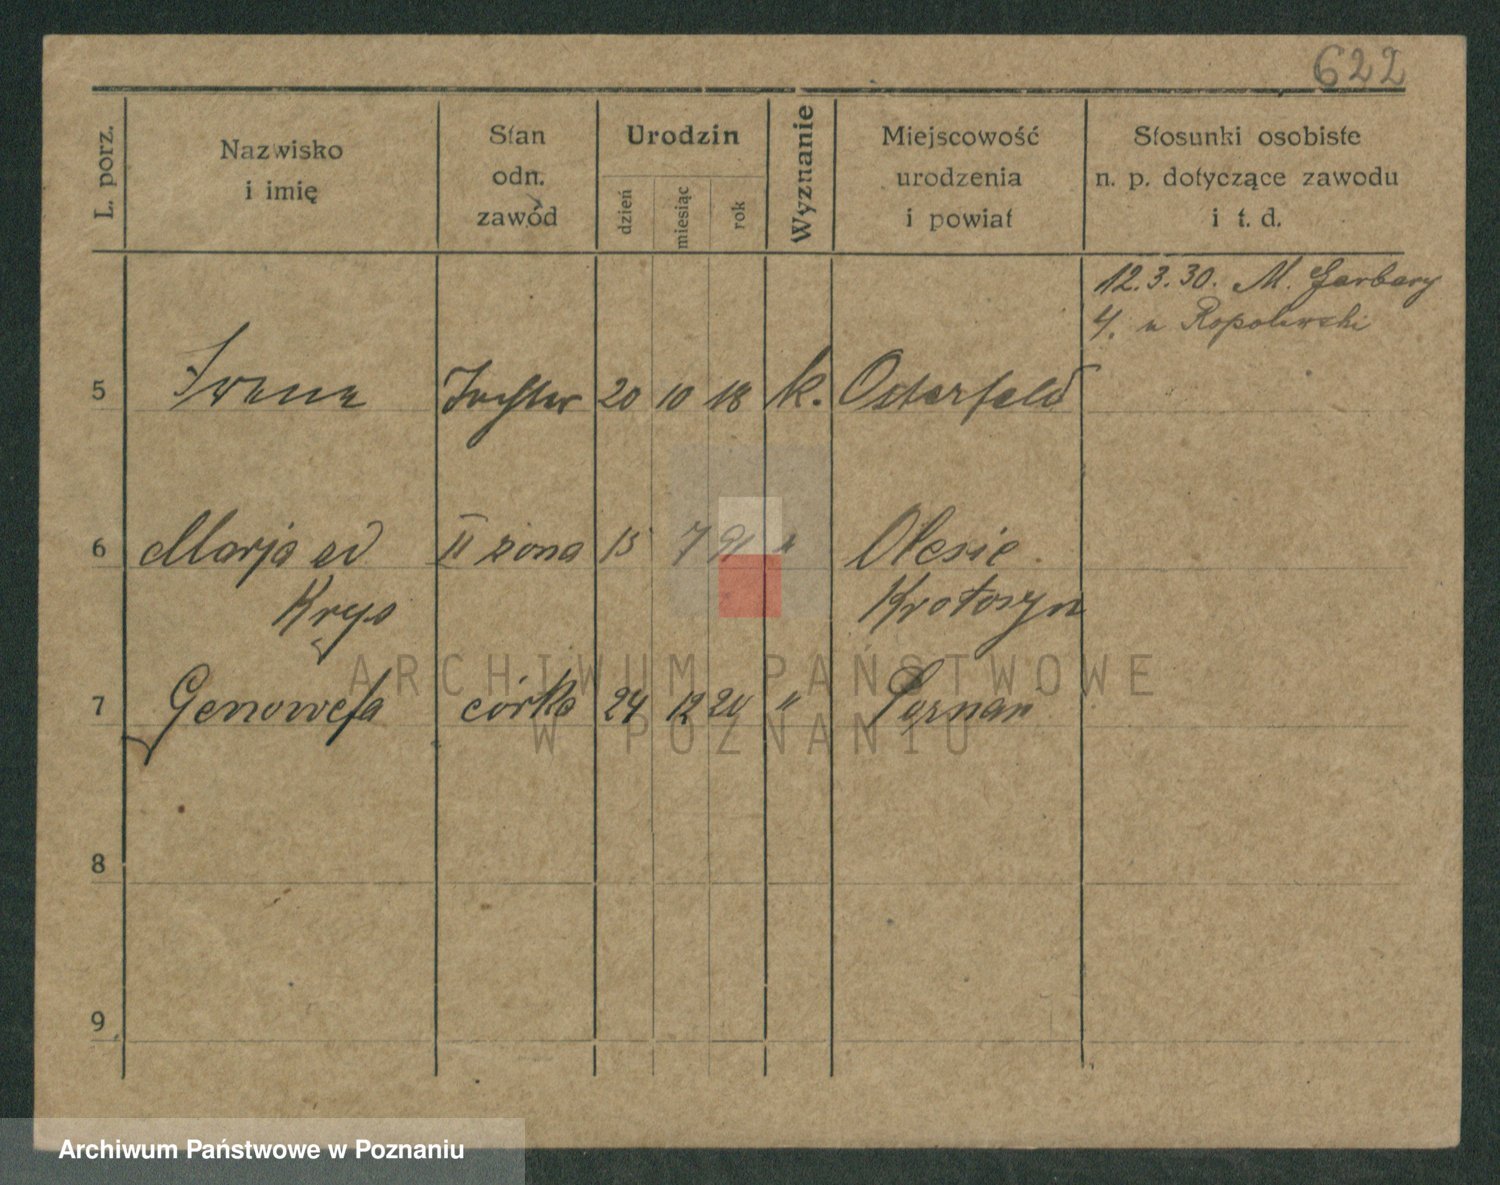 622
L. porz.
Nazwisko
i imię
Stan
odn.
zawód
Urodzin
dzień
miesiąc
rok
Wyznanie
Miejscowość
urodzenia
i powiat
Stosunki osobiste
n. p. dotyczące zawodu
i t. d.
12.3.30. M. Garbary
4. u Ropolewski
5 Irena Tochter 20 10 18 k. Osterfeld
6 Marja ed II żona 15 7 91 " Olesie
Krys Krotoszyn
7 Genowefa córka 24 12 20 " Poznań
8
9
ARCHIWUM PAŃSTWOWE
W POZNANIU
Archiwum Państwowe w Poznaniu